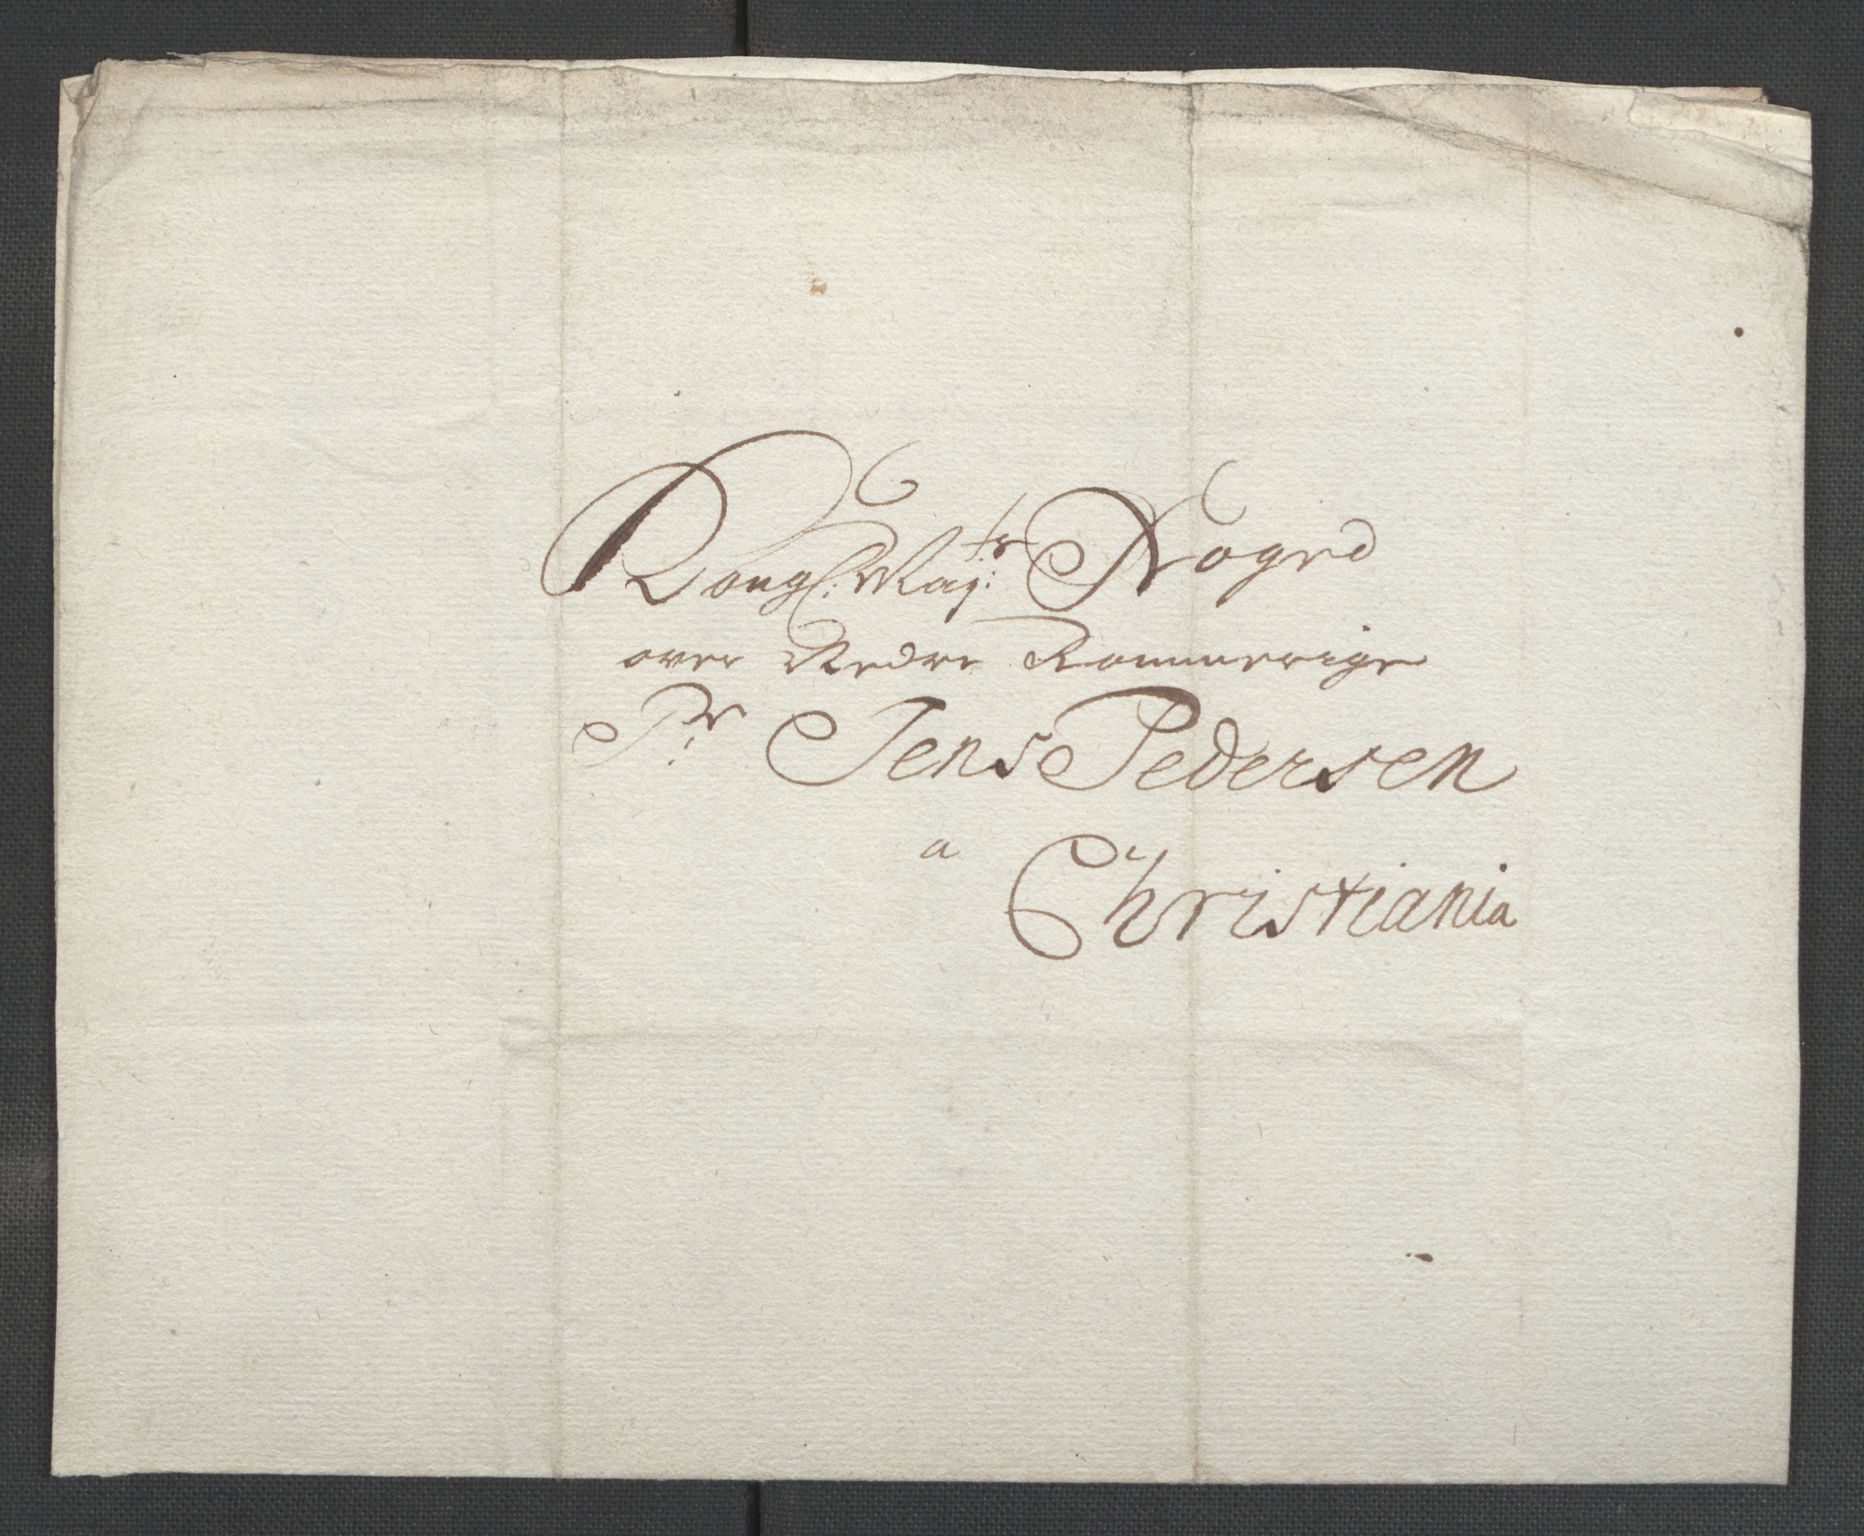 Kongl: Maj:ts Foged
over Nedre Rommerige
Sr: Jens Pedersen
a Christiania